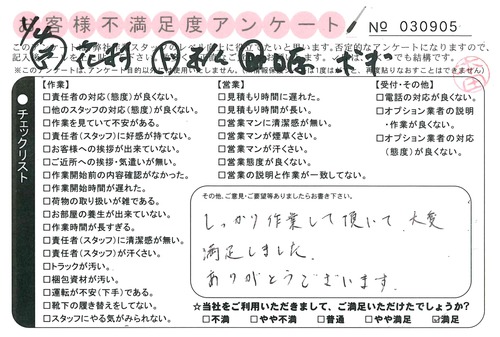 お客様不満足度アンケート
№ 030905
※このアンケートは、アンケート目的以外では使用いたしません。
チェックリスト
【作業】
□責任者の対応(態度)が良くない。
□他のスタッフの対応(態度)が良くない。
□作業を見ていて不安がある。
□責任者(スタッフ)に好感が持てない。
□お客様への挨拶が出来ていない。
□ご近所への挨拶・気遣いが無い。
□作業開始前の内容確認がなかった。
□作業開始時間が遅れた。
□荷物の取り扱いが雑である。
□お部屋の養生が出来ていない。
□作業時間が長すぎる。
□責任者(スタッフ)に清潔感が無い。
□責任者(スタッフ)が汗くさい。
□トラックが汚い。
□梱包資材が汚い。
□運転が不安(下手)である。
□靴下の履き替えをしてない。
□スタッフにやる気がみられない。
【営業】
□見積もり時間に遅れた。
□見積もり時間が長い。
□営業マンに清潔感が無い。
□営業マンが煙草くさい。
□営業マンが汗くさい。
□営業態度が良くない。
□営業の説明と作業が一致してない。
【受付・その他】
□電話の対応が良くない。
□オプション業者の説明・作業が良くない。
□オプション業者の対応(態度)が良くない。
その他、ご意見・ご要望等ありましたらお書き下さい。
しっかり作業して頂いて、大変
満足しました。
ありがとうございます。
☆当社をご利用いただきまして、ご満足いただけたでしょうか?
□不満 □やや不満 □普通 □やや満足 ☑満足